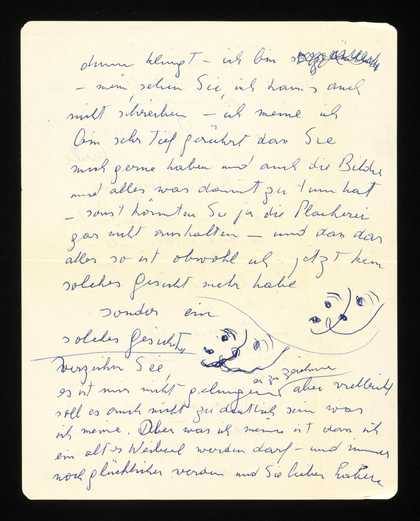 dumm klingt – ich bin
– nein, sehen Sie, ich kann's auch
nicht schreiben – ich meine ich
bin sehr tief gerührt dass Sie
mich gerne haben und auch die Bilder
und alles was damit zu tun hat
– sonst könnten Sie ja die Plackerei
gar nicht aushalten – und dass das
alles so ist obwohl ich jetzt kein
solches Gesicht mehr habe
sonder ein
solches Gesicht
Verzeihn Sie,
es zu zeichnen
es ist nur nicht gelungen aber vielleicht
soll es auch nicht zu deutlich sein was
ich meine. Aber was ich meine ist dass ich
ein altes Weiberl werden darf – und immer
noch glücklicher werden und Sie lieber